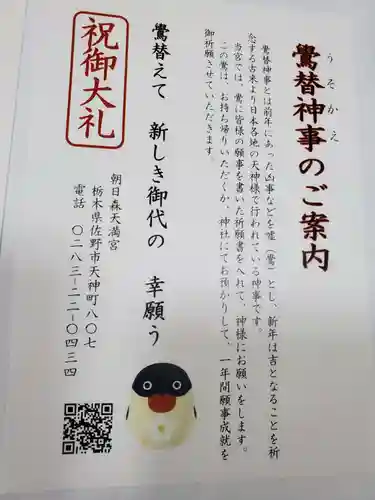 うそかえ
鷽替神事のご案内
鷽替神事とは前年にあった凶事などを嘘（鷽）とし、新年は吉となることを祈
念する古来より日本各地の天神様で行われている神事です。
当宮では、鷽に皆様の願事を書いた祈願書をへれて、神様にお願いをします。
この鷽は、お持ち帰りいただくか、神社にてお預かりして、一年間願事成就を
御祈願させていただきます。
鷽替えて　新しき御代の　幸願う
祝御大礼
朝日森天満宮
栃木県佐野市天神町八〇七
電話　〇二八三－二二－〇四三四